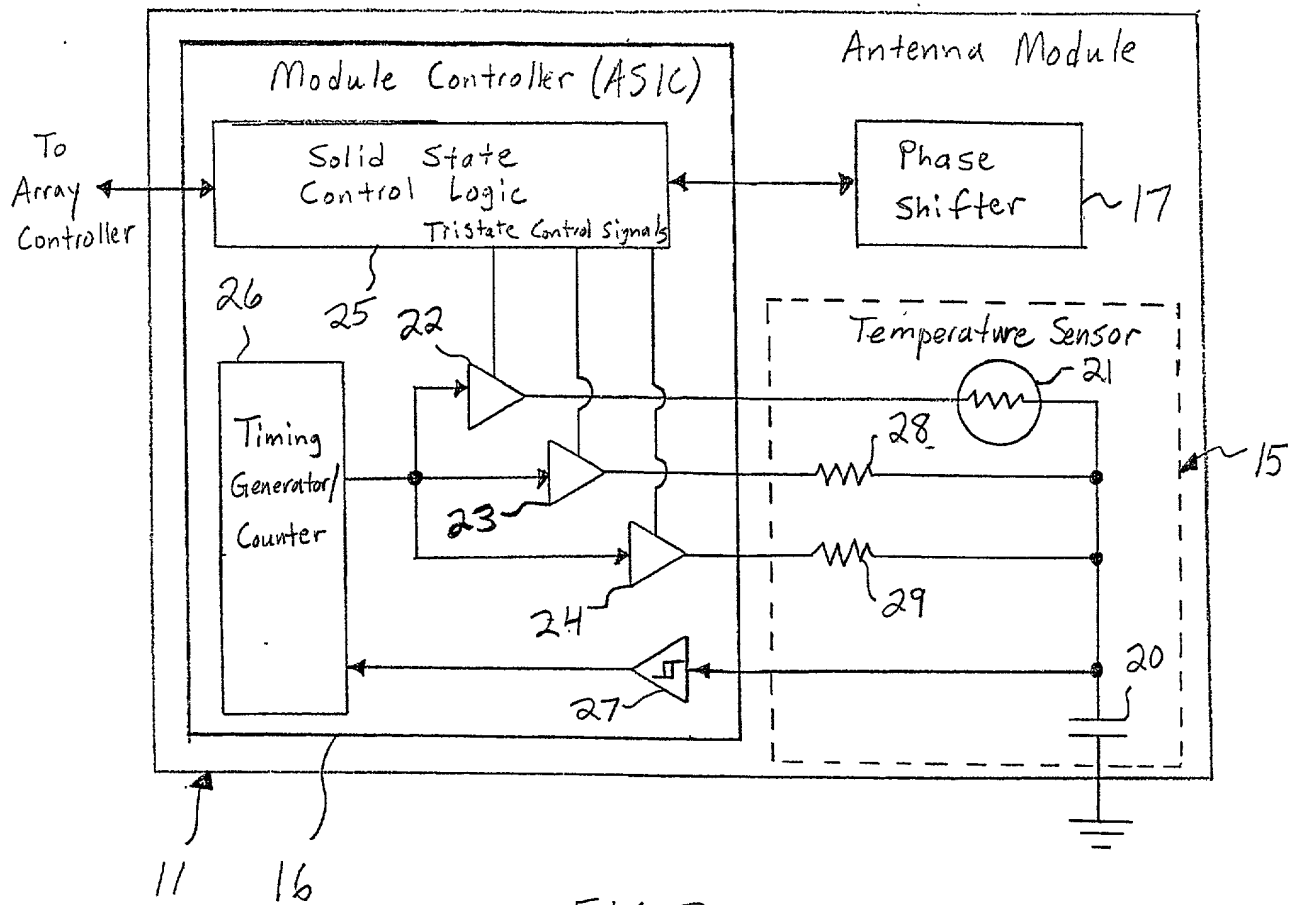 Antenna Module
Module Controller (ASIC)
To
Array
Controller
Solid State
Control Logic
Tristate Control Signals
Phase
Shifter
17
25
26
22
Temperature Sensor
21
Timing
Generator/
Counter
28
15
23
29
24
20
27
11
16